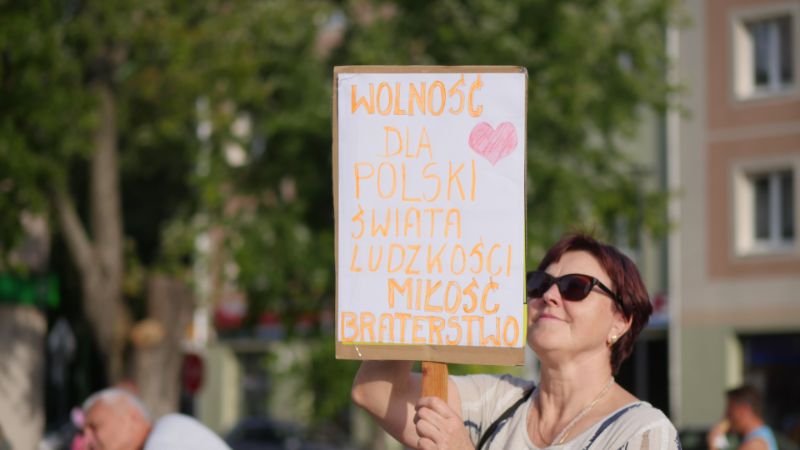 WOLNOŚĆ
DLA
POLSKI
ŚWIATA
LUDZKOŚCI
MIŁOŚĆ
BRATERSTWO